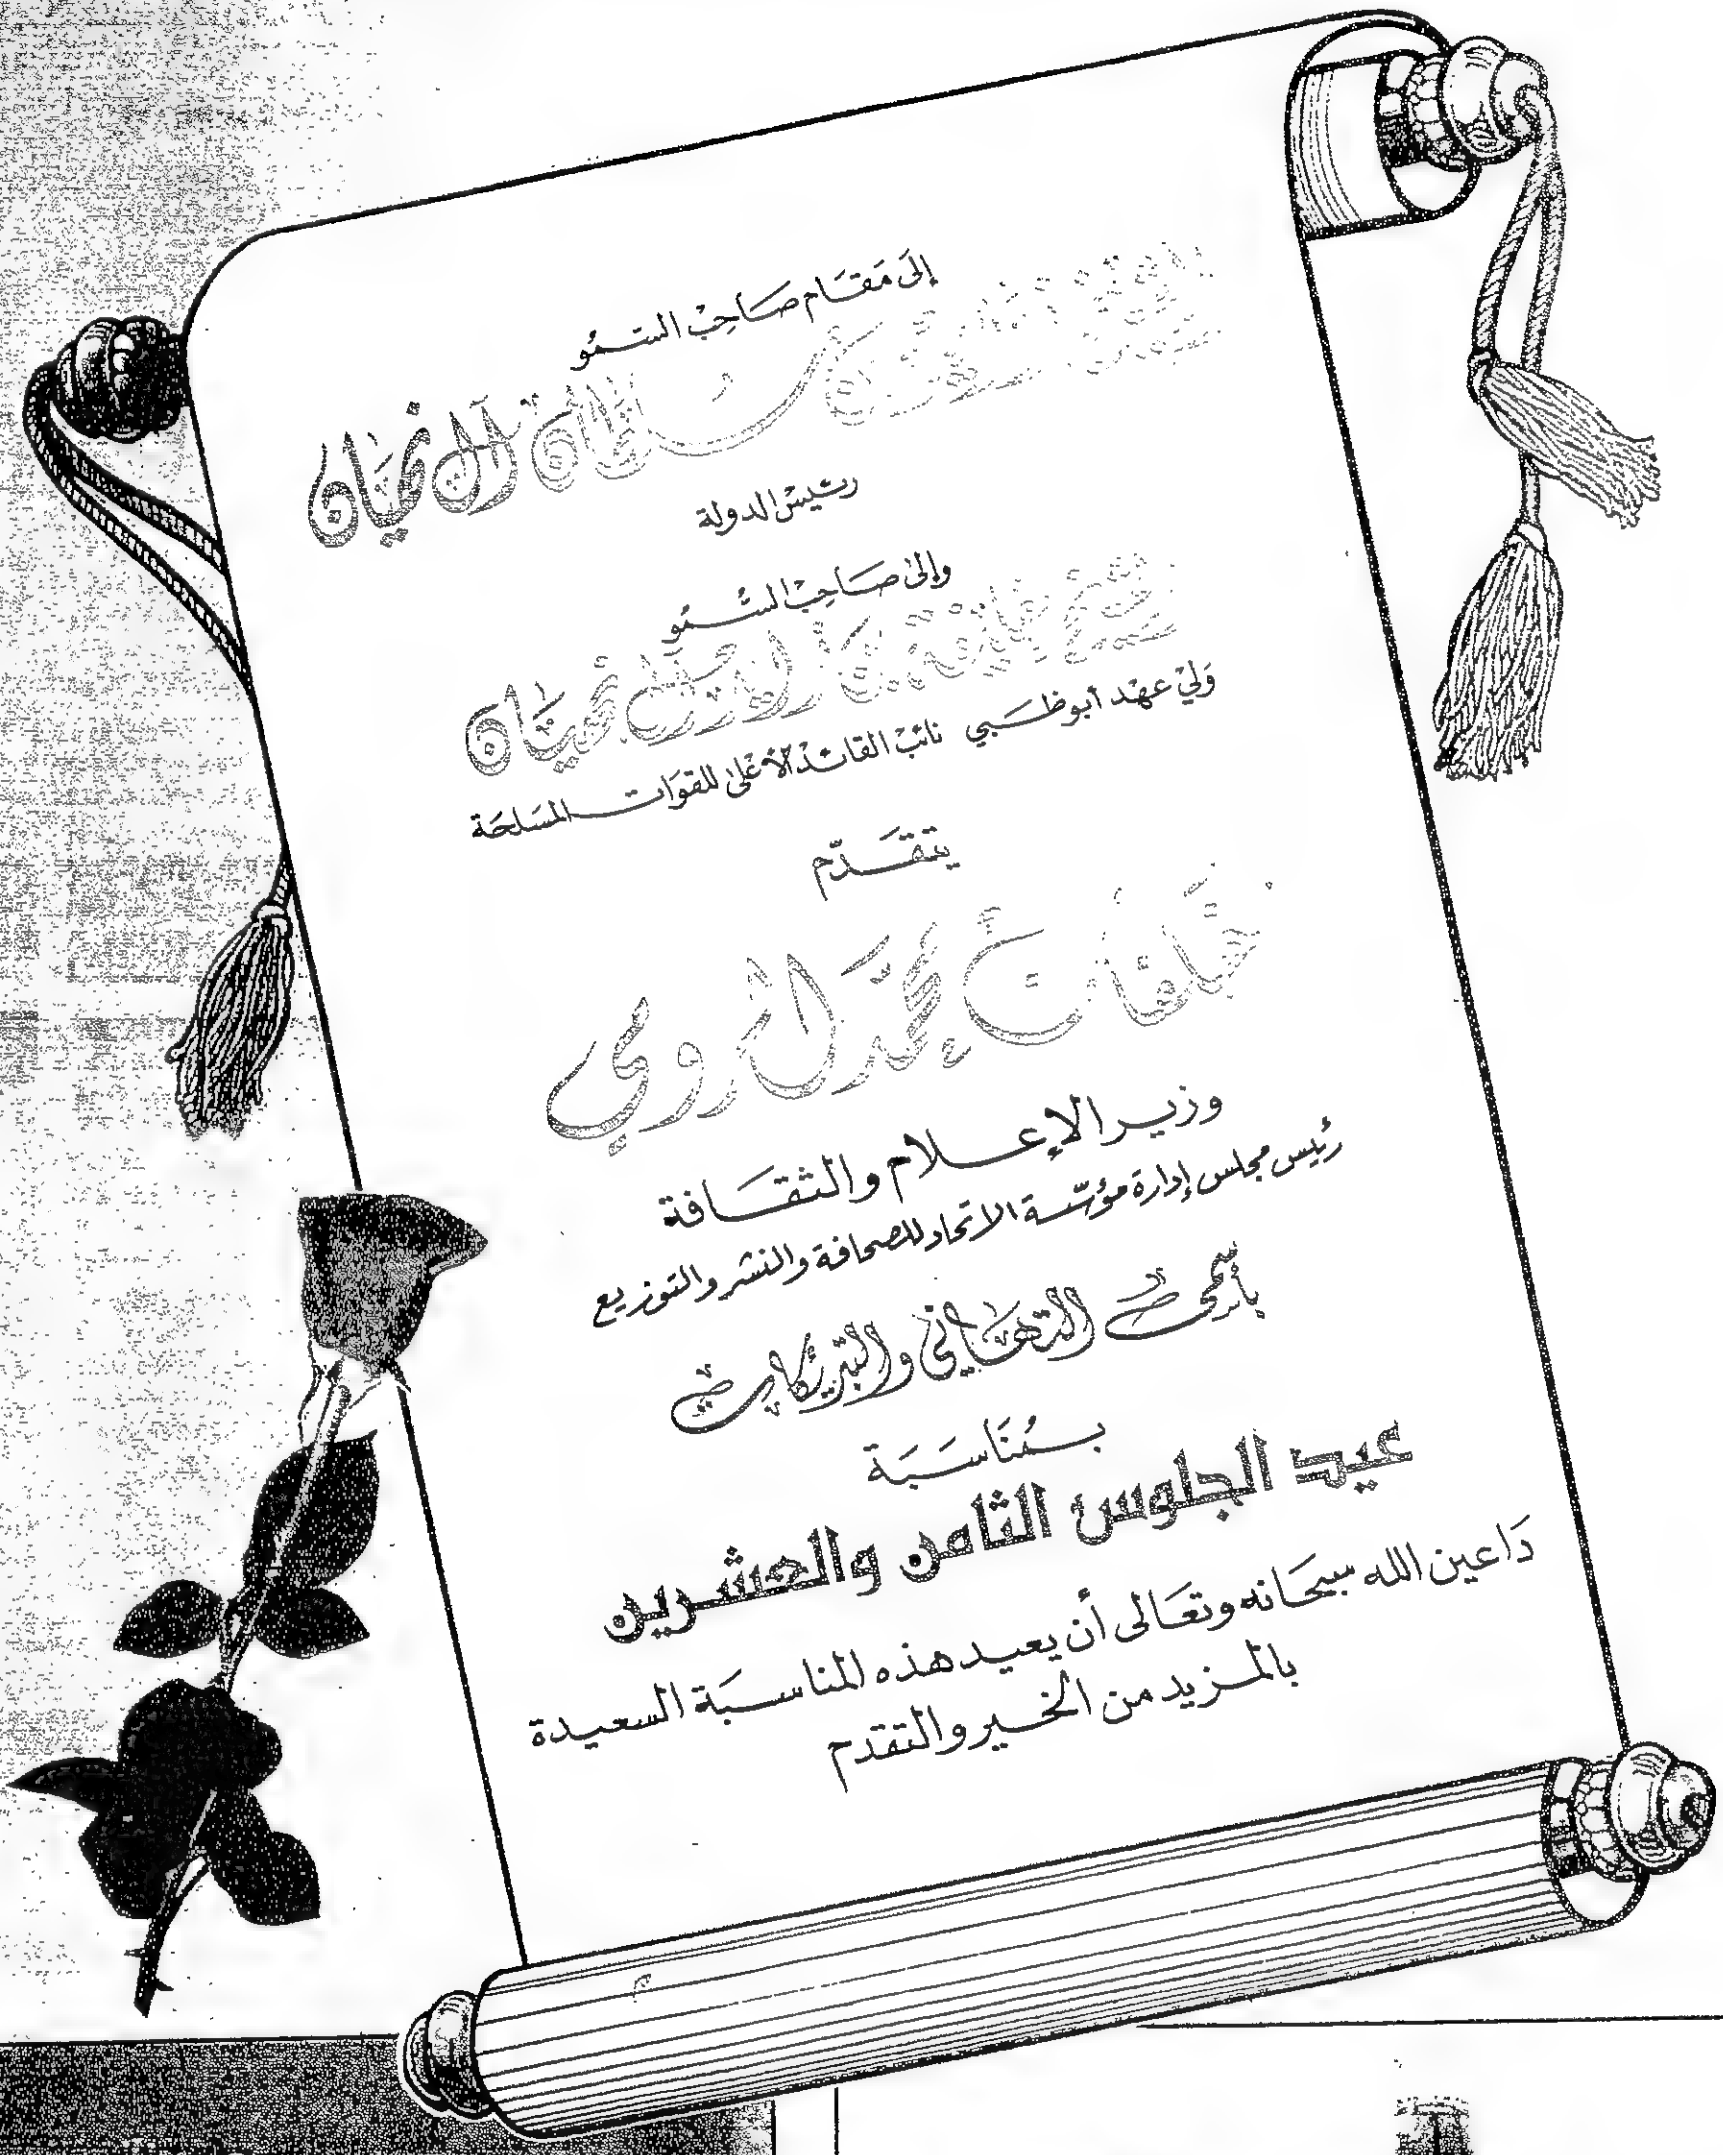 إلى مقام صاحب السمو
سلطان آل نهيان
رئيس الدولة
وإلى صاحب السمو
الشيخ خليفة بن زايد آل نهيان
ولي عهد أبوظبي نائب القائد الأعلى للقوات المسلحة
يتقدم
خلفان محمد الرومي
وزير الإعلام والثقافة
رئيس مجلس إدارة مؤسسة الاتحاد للصحافة والنشر والتوزيع
بأسمى التهاني والتبريكات
بمناسبة
عيد الجلوس الثامن والعشرين
داعين الله سبحانه وتعالى أن يعيد هذه المناسبة السعيدة
بالمزيد من الخير والتقدم